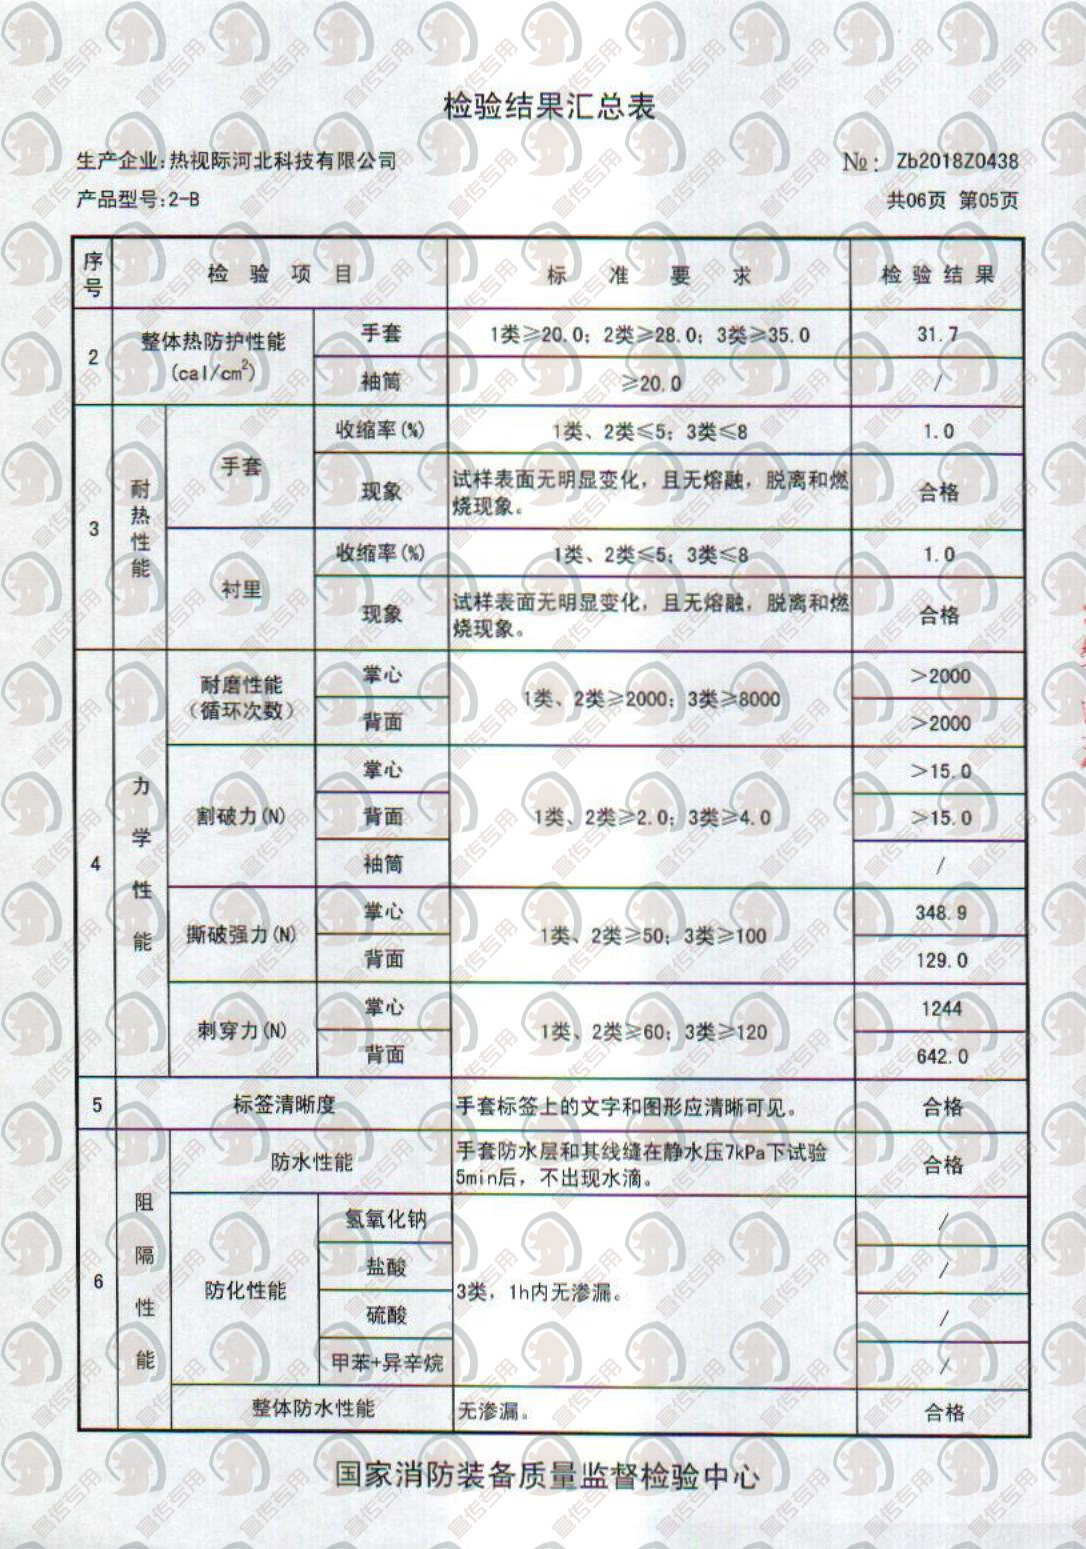 检验结果汇总表
生产企业:热视际河北科技有限公司
№: Zb2018Z0438
产品型号:2-B
共06页 第05页
序号 检验项目 标准要求 检验结果
2 整体热防护性能(cal/cm²) 手套 1类≥20.0; 2类≥28.0; 3类≥35.0 31.7
袖筒 ≥20.0 /
3 耐热性能 手套 收缩率(%) 1类、2类≤5; 3类≤8 1.0
现象 试样表面无明显变化, 且无熔融, 脱离和燃
烧现象。 合格
衬里 收缩率(%) 1类、2类≤5; 3类≤8 1.0
现象 试样表面无明显变化, 且无熔融, 脱离和燃
烧现象。 合格
4 力学性能 耐磨性能(循环次数) 掌心 1类、2类≥2000; 3类≥8000 >2000
背面 >2000
割破力(N) 掌心 1类、2类≥2.0; 3类≥4.0 >15.0
背面 >15.0
袖筒 /
撕破强力(N) 掌心 1类、2类≥50; 3类≥100 348.9
背面 129.0
刺穿力(N) 掌心 1类、2类≥60; 3类≥120 1244
背面 642.0
5 标签清晰度 手套标签上的文字和图形应清晰可见。 合格
6 阻隔性能 防水性能 手套防水层和其线缝在静水压7kPa下试验
5min后, 不出现水滴。 合格
防化性能 氢氧化钠 3类, 1h内无渗漏。 /
盐酸 /
硫酸 /
甲苯+异辛烷 /
整体防水性能 无渗漏。 合格
国家消防装备质量监督检验中心
宣传专用